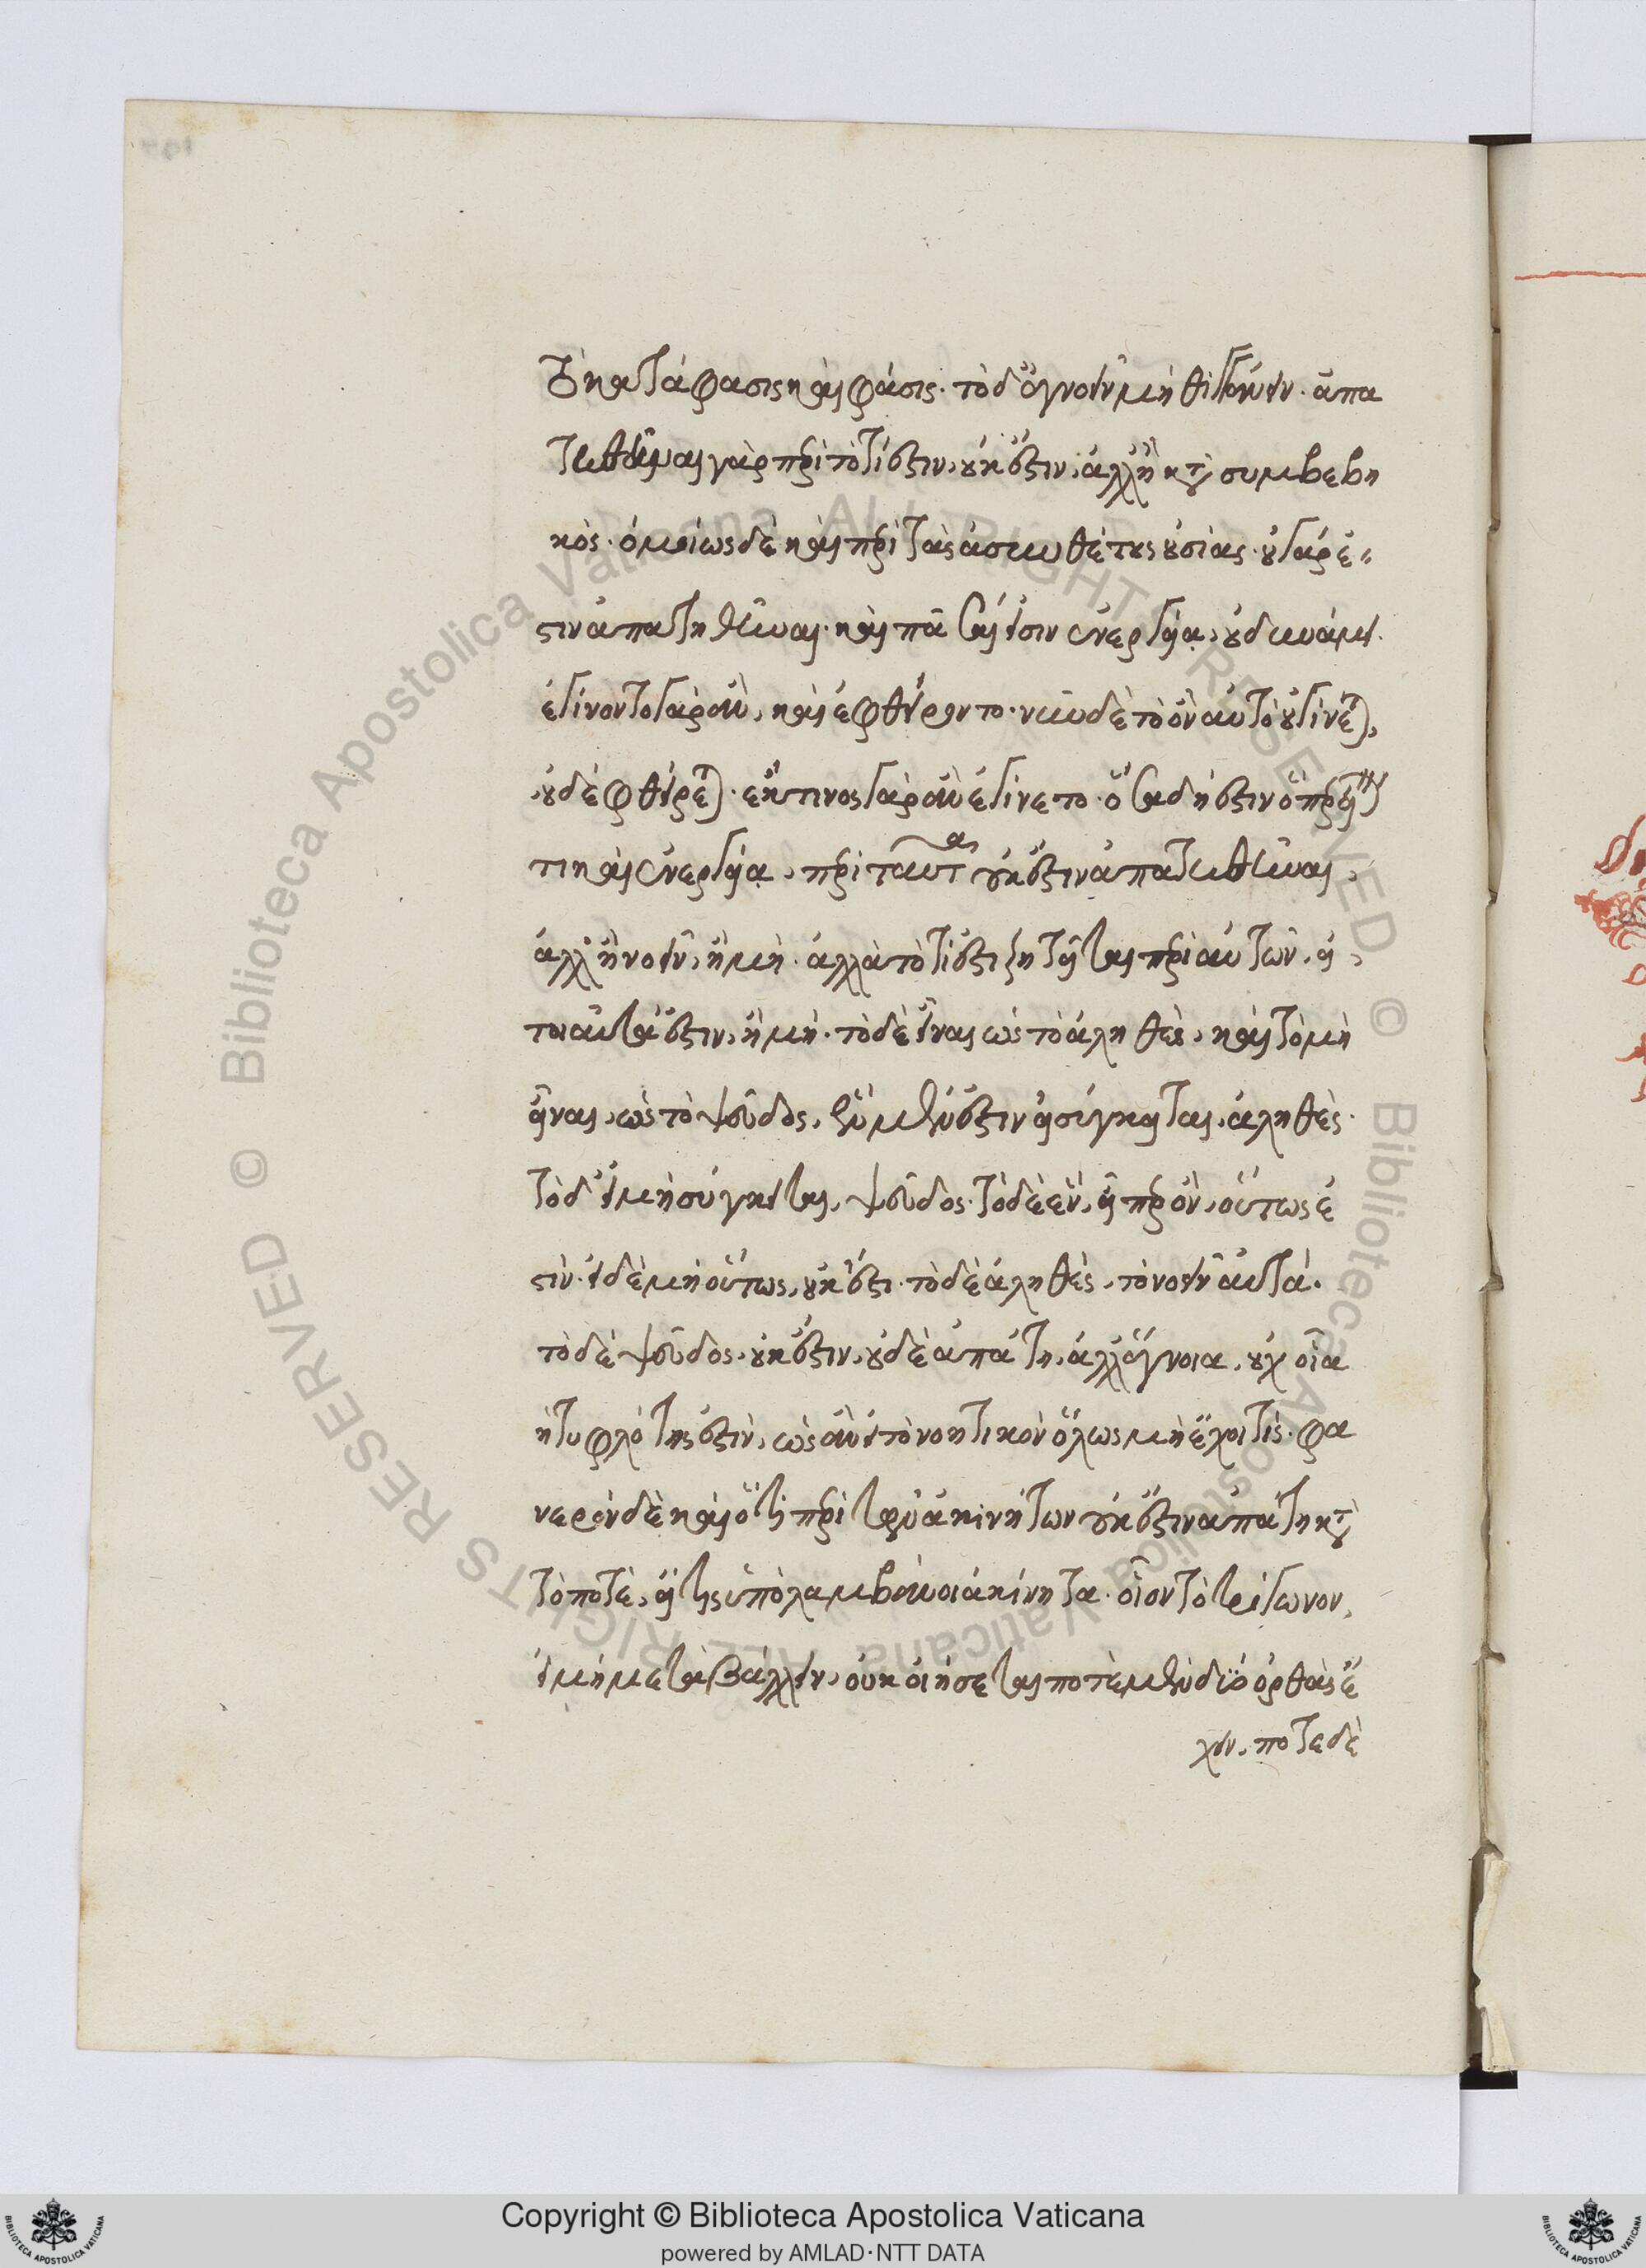 τὸ κατάφασις καὶ φάσις· τὸ δ' ἀγνοεῖν μὴ θιγγάνειν· ἀπα
τηθῆναι γὰρ περὶ τὸ τί ἐστιν, οὐκ ἔστιν, ἀλλ' ἢ κατὰ συμβεβη
κός· ὁμοίως δὲ καὶ περὶ τὰς ἀσυνθέτους οὐσίας· οὐ γάρ ἐ
στιν ἀπατηθῆναι· καὶ πᾶσαι εἰσὶν ἐνεργείᾳ, οὐ δυνάμει·
ἐγίνοντο γὰρ ἂν, καὶ ἐφθείροντο· νῦν δὲ τὸ ὂν αὐτὸ οὐ γίνεται,
οὐδὲ φθείρεται· ἔκ τινος γὰρ ἂν ἐγίνετο· ὅσα δή ἐστιν ὅπερ εἶναί
τι καὶ ἐνεργείᾳ, περὶ ταῦτα οὐκ ἔστιν ἀπατηθῆναι,
ἀλλ' ἢ νοεῖν, ἢ μή· ἀλλὰ τὸ τί ἐστι ζητεῖται περὶ αὐτῶν, εἰ
τοιαῦτά ἐστιν, ἢ μή· τὸ δὲ εἶναι ὡς τὸ ἀληθὲς, καὶ τὸ μὴ
εἶναι, ὡς τὸ ψεῦδος, ἓν μέν ἐστιν εἰ σύγκειται, ἀληθὲς·
τὸ δ' εἰ μὴ σύγκειται, ψεῦδος· τὸ δὲ ἓν, εἴπερ ὂν, οὕτως ἐ
στίν· εἰ δὲ μὴ οὕτως, οὐκ ἔστι· τὸ δὲ ἀληθὲς, τὸ νοεῖν αὐτά·
τὸ δὲ ψεῦδος, οὐκ ἔστιν, οὐδὲ ἀπάτη, ἀλλ' ἄγνοια, οὐχ οἵα
ἡ τυφλότης ἐστὶν, ὡς ἂν εἰ τὸ νοητικὸν ὅλως μὴ ἔχοι τίς· φα
νερὸν δὲ καὶ ὅτι περὶ τῶν ἀκινήτων οὐκ ἔστιν ἀπάτη κατὰ
τὸ ποτὲ, εἴ τις ὑπολαμβάνοι ἀκίνητα· οἷον τὸ τρίγωνον,
εἰ μὴ μεταβάλλειν, οὐκ οἰήσεται ποτὲ μὲν δύο ὀρθὰς ἔ
χειν, ποτὲ δὲ
Copyright © Biblioteca Apostolica Vaticana
powered by AMLAD·NTT DATA